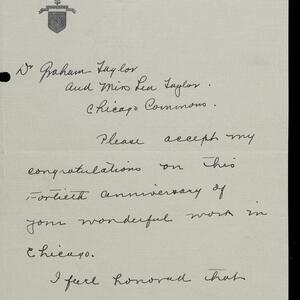 Dr Graham Taylor
and Miss Lea Taylor.
Chicago Commons.
Please accept my
congratulations on this
Fortieth anniversary of
your wonderful work in
Chicago.
I feel honored that